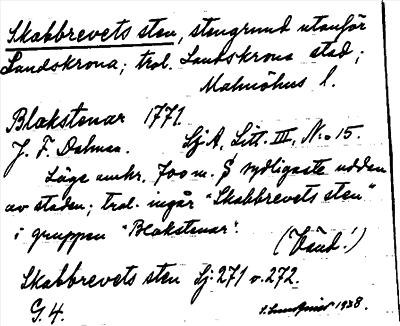 Skabbrevets sten, stengrund utanför
Landskrona; trol. Landskrona stad;
Malmöhus l.
Blakstenar 1771.
J. F. Dalman. Sj. A. Litt. III, N:o 15.
Läge omkr. 700 m. S sydligaste udden
av staden; trol. ingår "Skabbrevets sten"
i gruppen "Blakstenar".
(Vänd!)
Skabbrevets sten Sj: 271 o. 272.
G. 4.
1938.